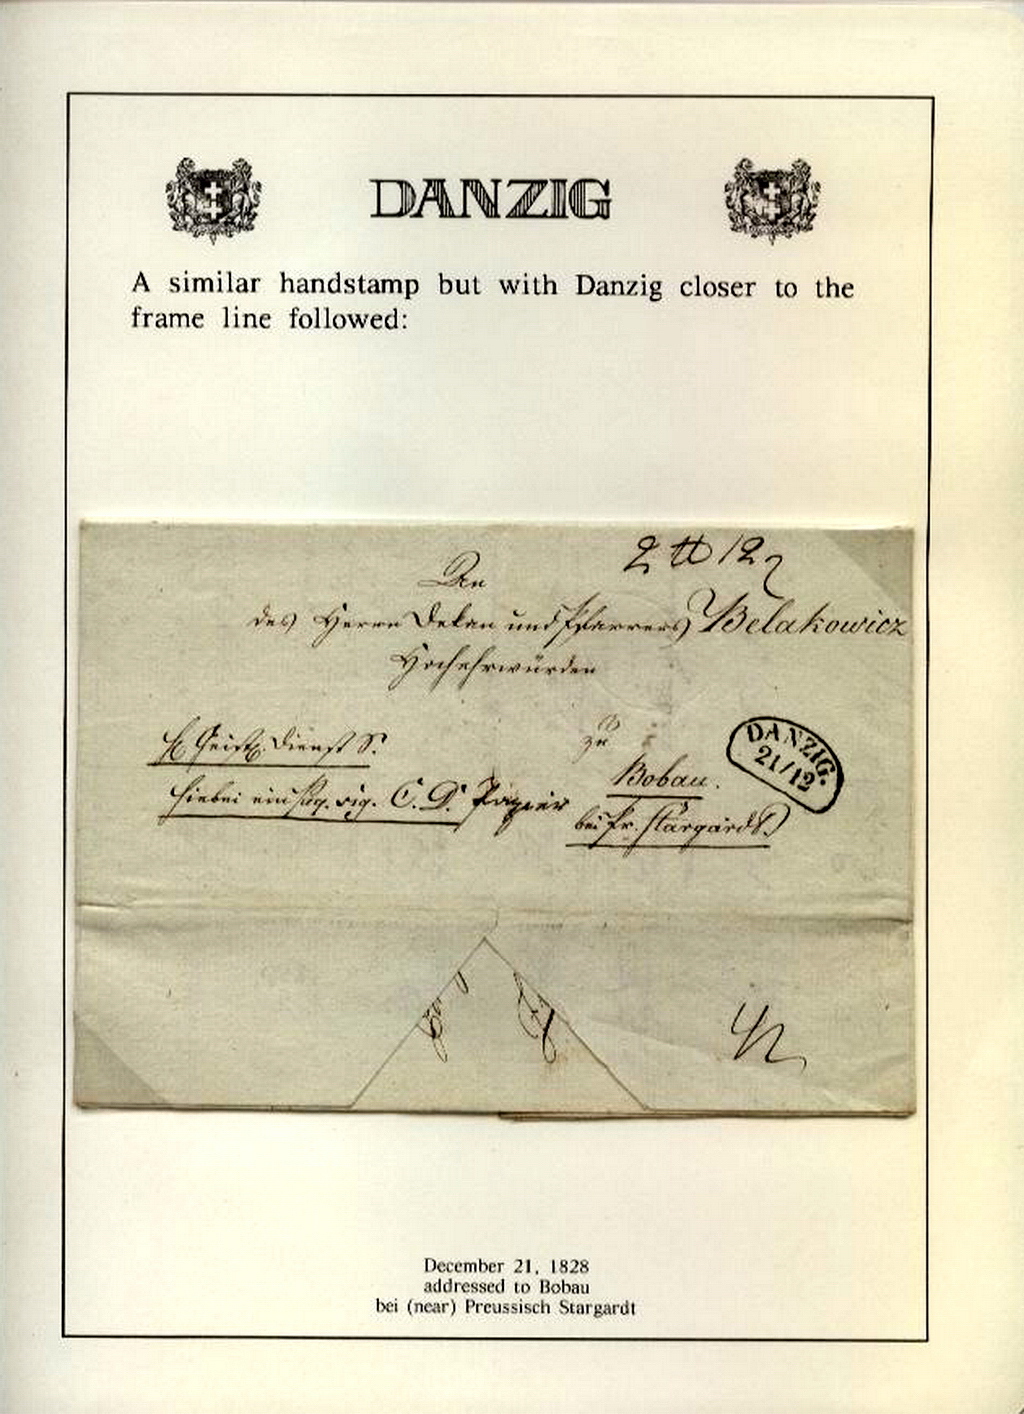 DANZIG
A similar handstamp but with Danzig closer to the
frame line followed:
2 ℔ 12
An
des Herrn Dekan und Pfarrers Belakowicz
Hochehrwürden
zu
Bobau.
bei Pr. Stargardt.
DANZIG.
21/12
hiebei ein sig. C. D. Papier
December 21, 1828
addressed to Bobau
bei (near) Preussisch Stargardt